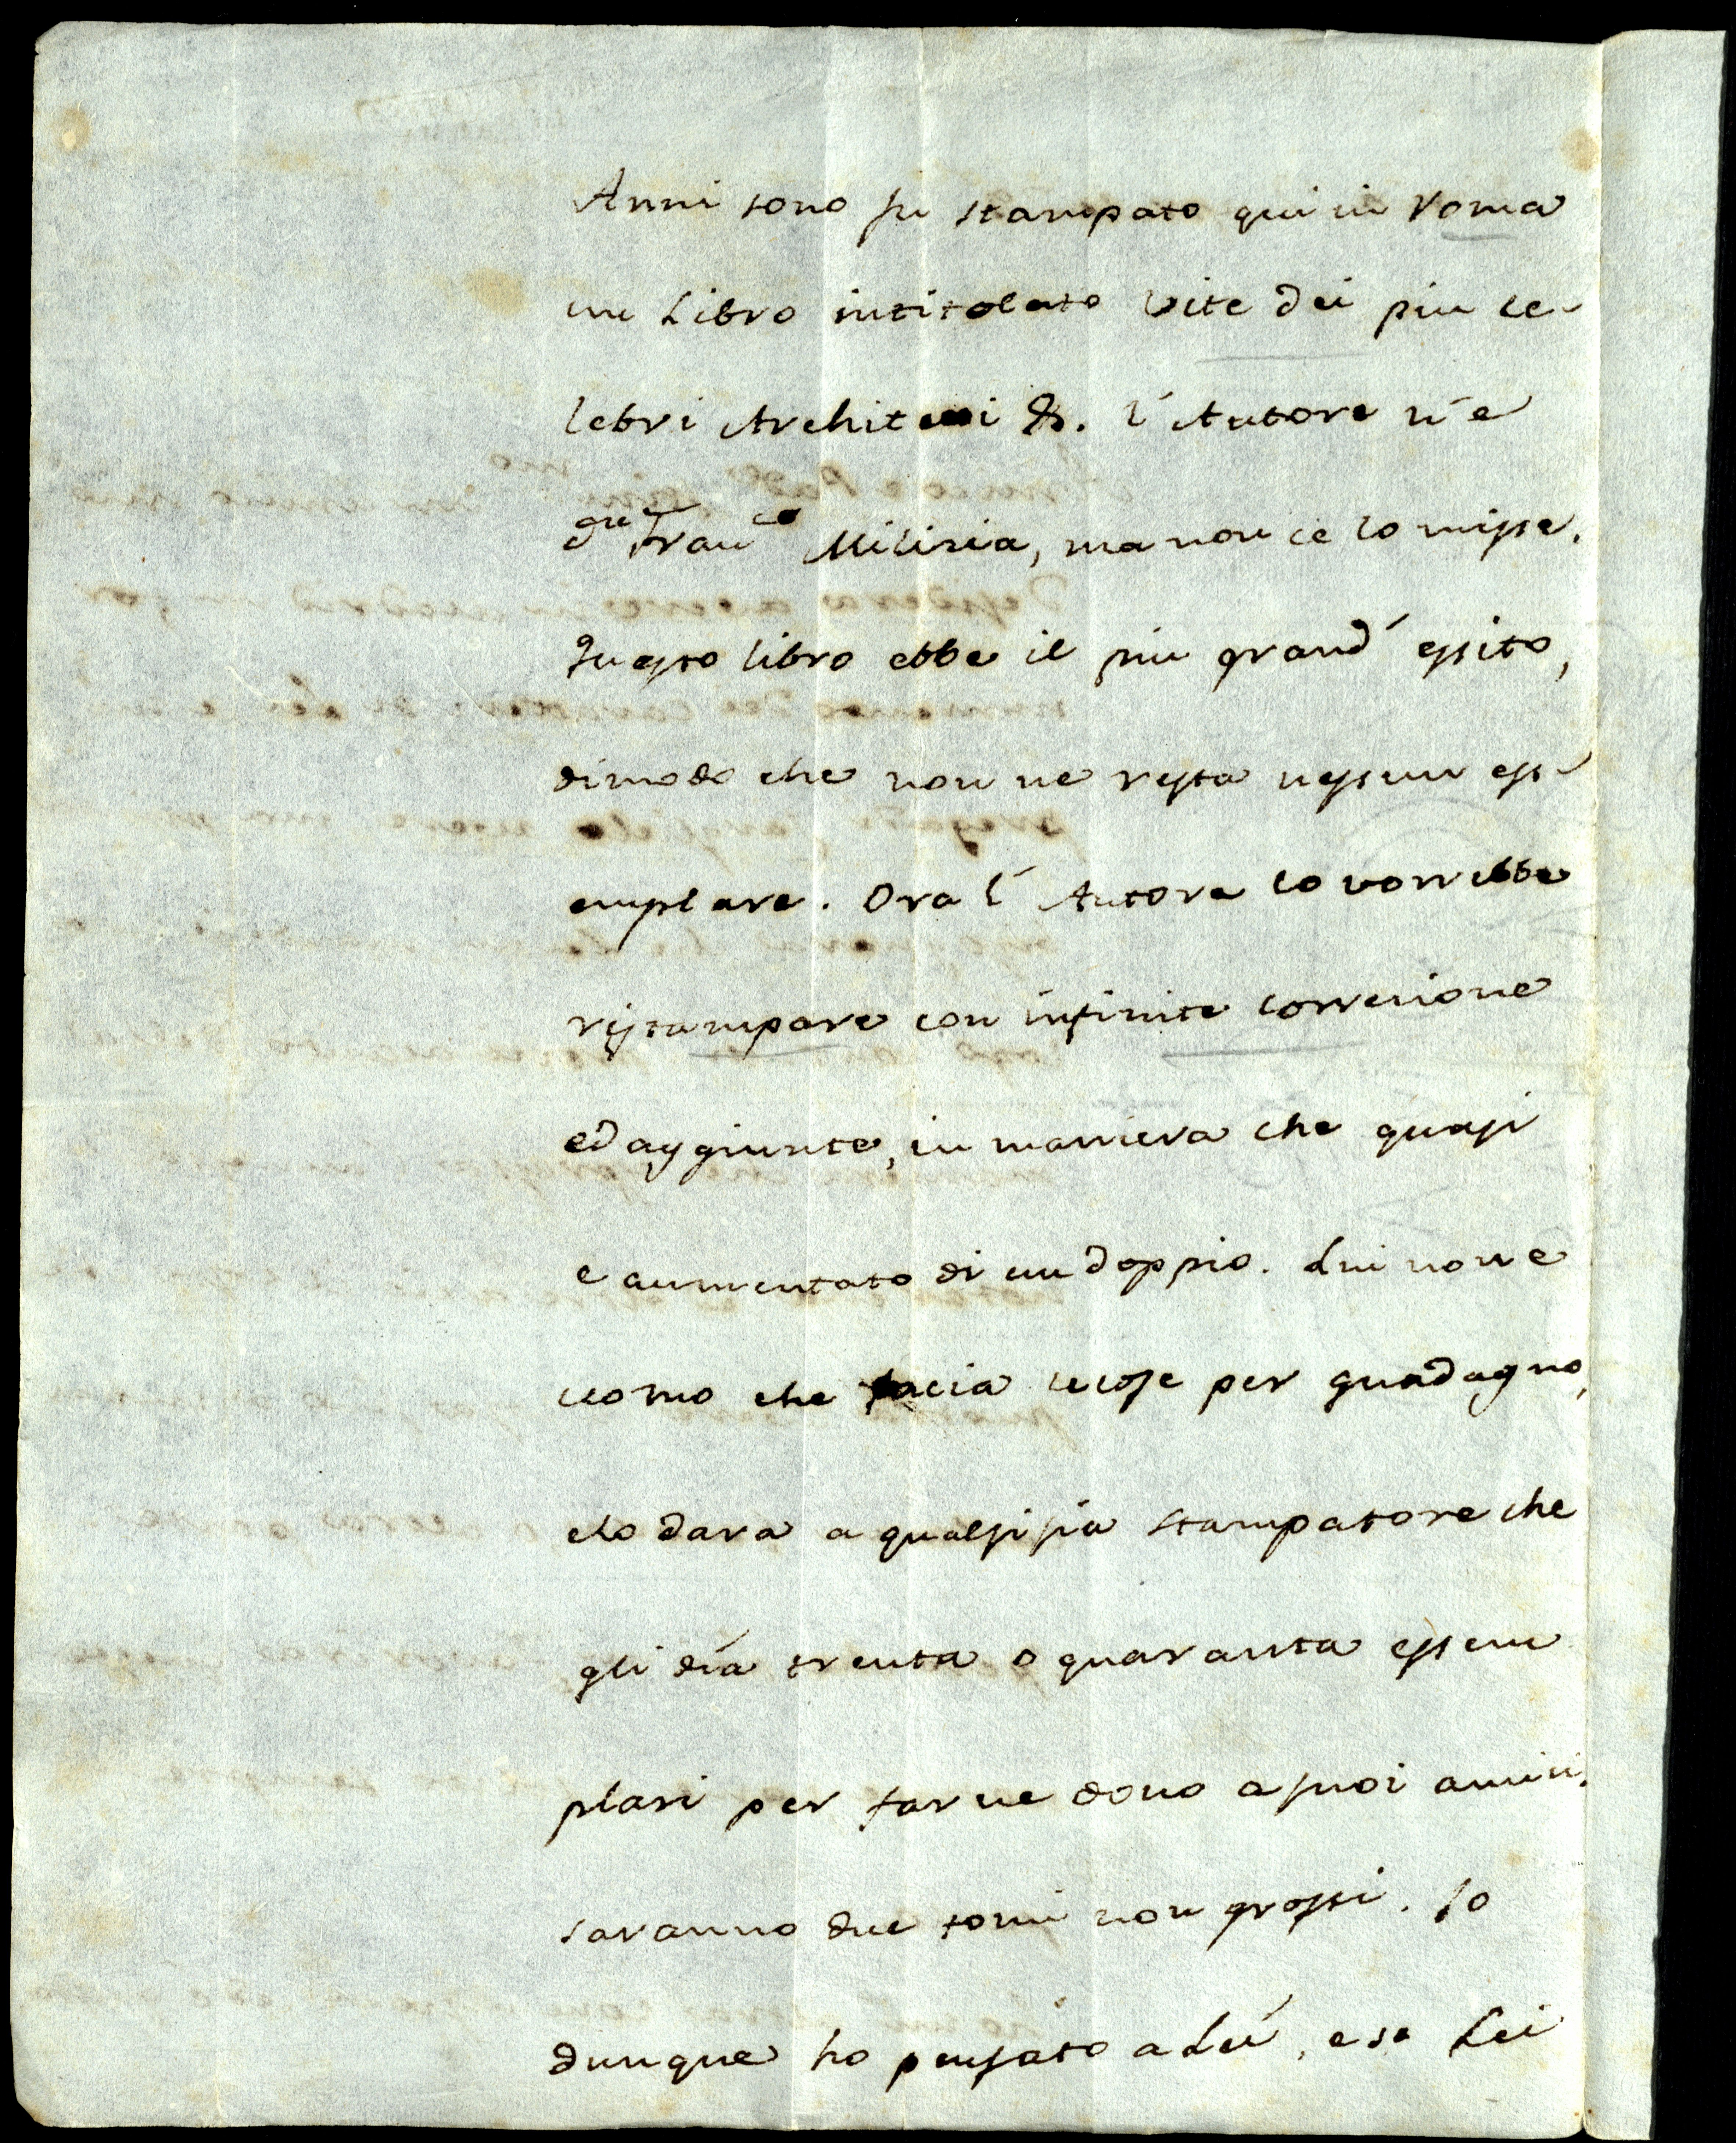 Anni sono fu stampato qui in Roma
un Libro intitolato Vite dei piu ce-
lebri Architetti &. l'Autore n'e
Franco Milizia, ma non ce lo misse.
Questo libro ebbe il piu grand' essito,
dimodo che non ne resta nessun ess-
emplare. Ora l'Autore lo vorrebbe
ristampare con infinite correzione
ed aggiunte, in maniera che quasi
e aumentato di un doppio. Lui non e
uomo che facia le cose per guadagno,
e lo dara a qualsisia stampatore che
gli día trenta o quaranta essem
plari per farne dono a suoi amici.
saranno due tomi non grossi. Io
dunque ho pensato a Léi, e se Lei